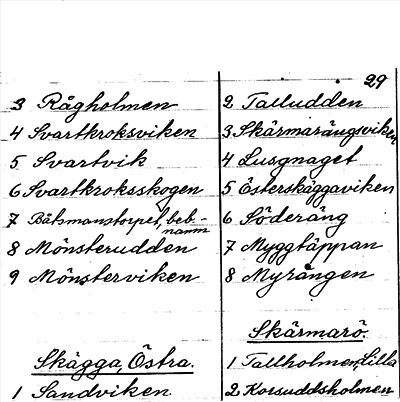 29
3 Rågholmen
4 Svartkroksviken
5 Svartvik
6 Svartkroksskogen
7 Båtsmanstorpet, beb.-
namn
8 Mönsterudden
9 Mönsterviken
Skägga, Östra.
1 Sandviken
2 Talludden
3 Skärmarängsviken
4 Lusgnaget
5 Österskäggaviken
6 Söderäng
7 Myggtäppan
8 Myrången
Skärmarö.
1 Tallholmen, Lilla
2 Korsuddsholmen